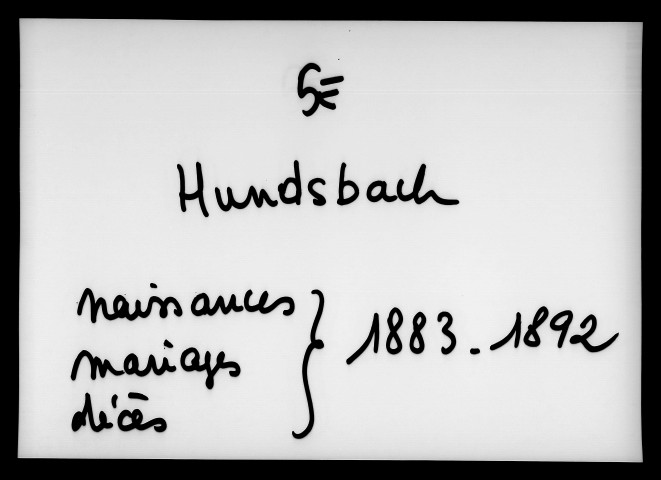 5E
Hundsbach
naissances
mariages } 1883-1892
décès